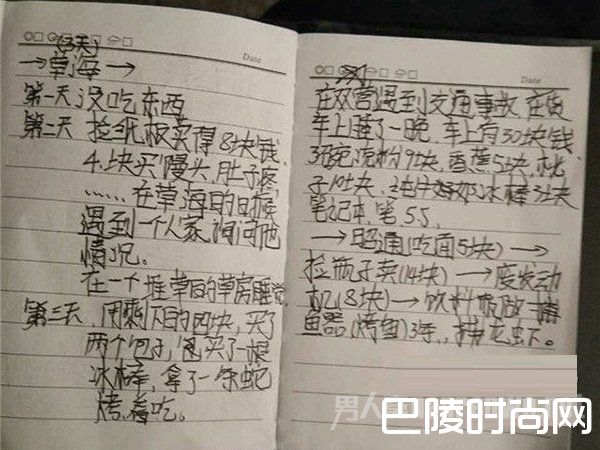 好天
→草海→
第一天 没吃东西
第二天 捡纸板卖得8块钱.
4.块买馒头.肚子疼
……在草海的时候
遇到一个人家,询问他
情况。
在一个堆草的草房睡觉
第三天 用剩下的四块,买了
两个包子,还买了一根
冰棒,拿了一条蛇
烤着吃。
Date
在双营遇到交通事故.在货
车上睡了一晚.车上有30块钱.
3碗凉粉9块,香蕉5块,桃
子10块、冰棒3块
笔记本,笔5.5.
→昭通(吃面5块)→
捡瓶子卖(14块)→废发动
机(8块)→饮料瓶做捕
鱼器(烤鱼)3条,龙虾。
Date
男人
巴陵时尚网